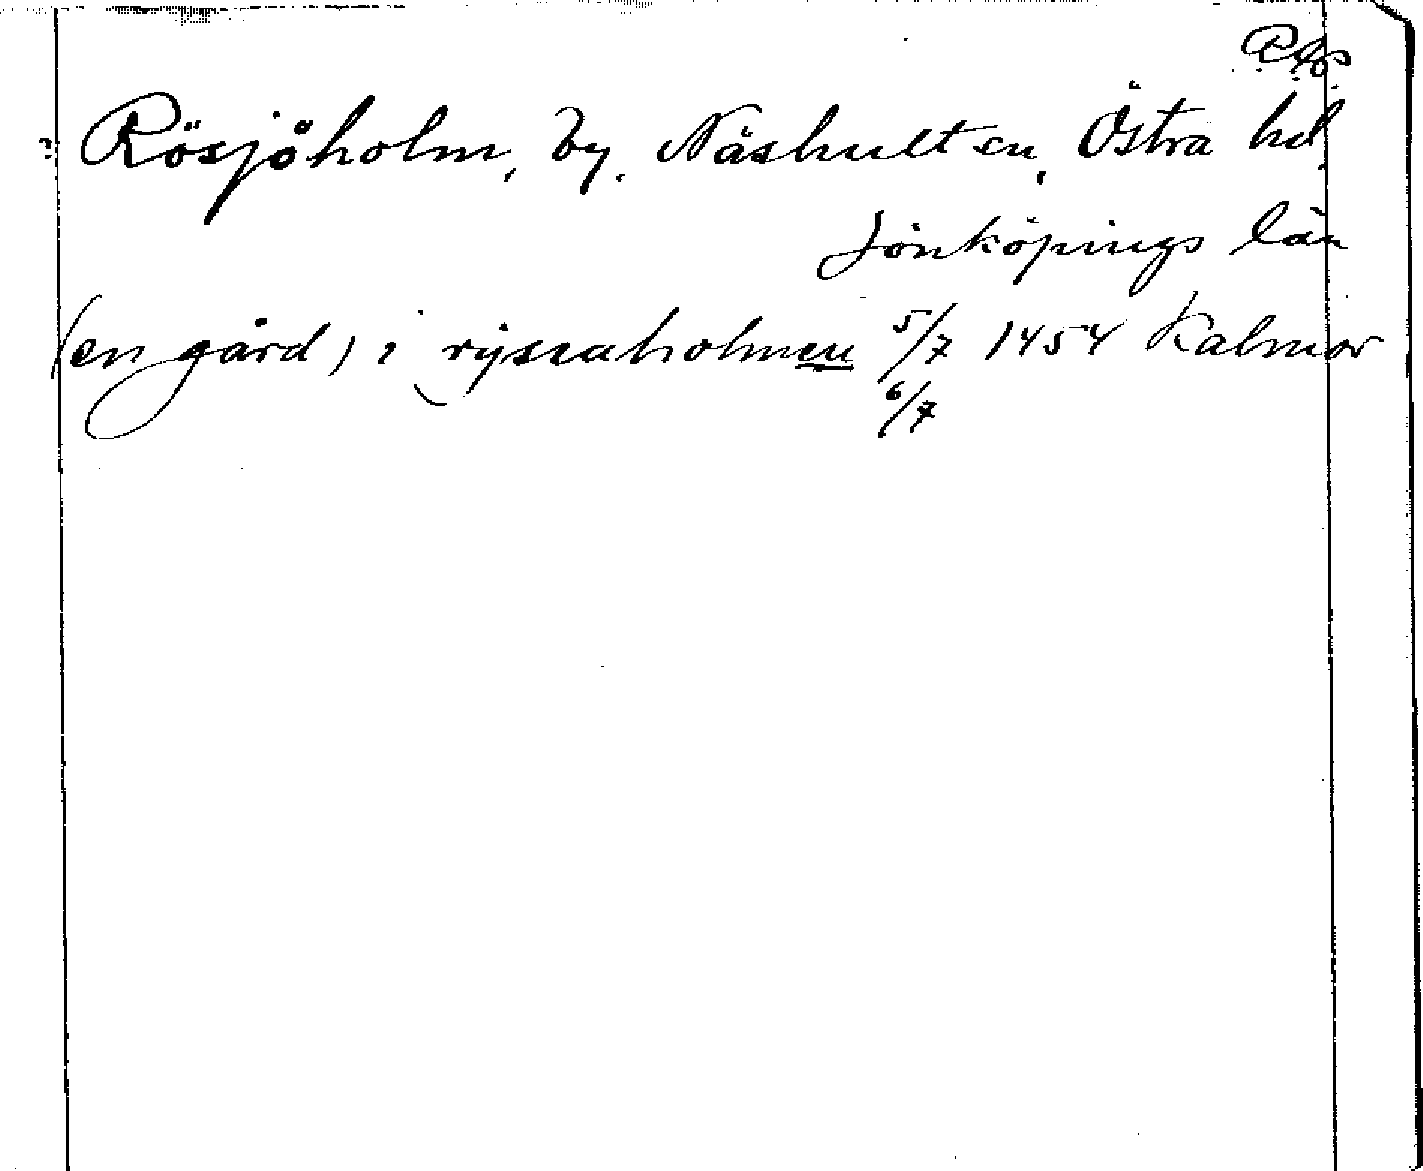 Rösjöholm, by. Näshult sn, Östra hd,
Jönköpings län
(en gård) i ryssaholmen 5/7 1454 Kalmar
6/7